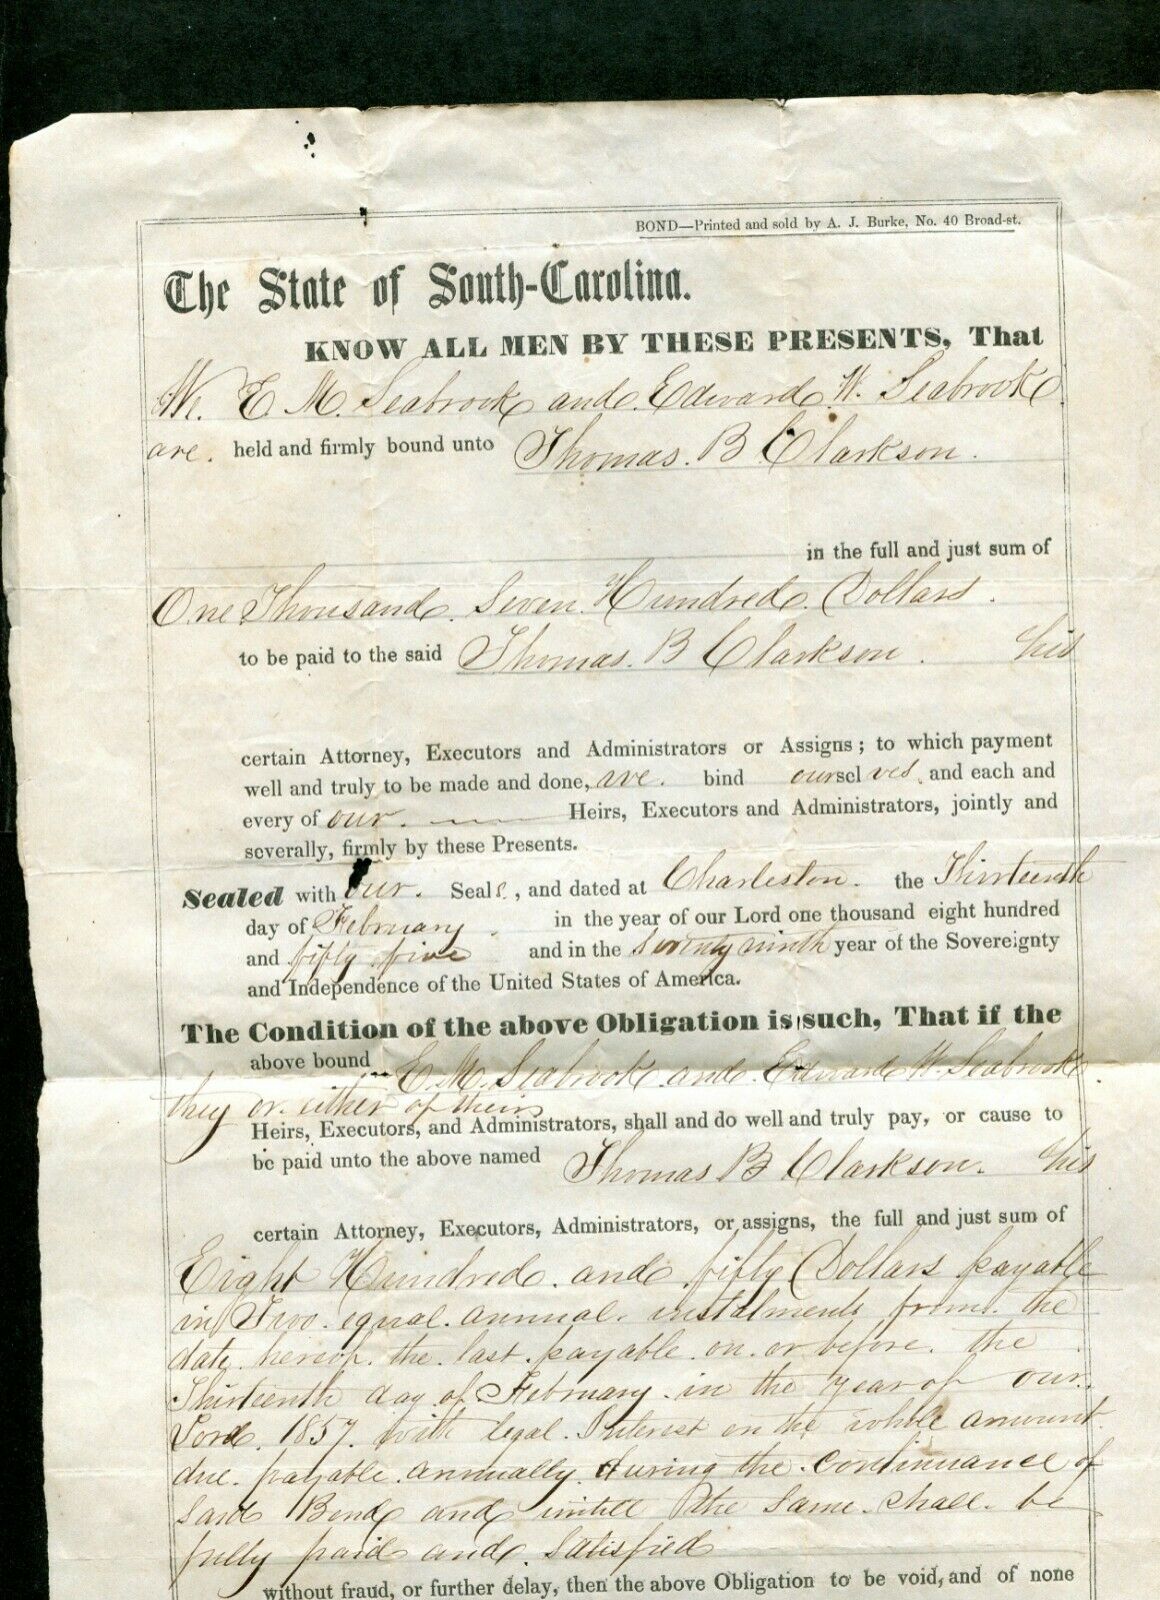 BOND—Printed and sold by A. J. Burke, No. 40 Broad-st.
The State of South-Carolina.
KNOW ALL MEN BY THESE PRESENTS, That
We. E. M. Seabrook and Edward W. Seabrook
are. held and firmly bound unto Thomas. B Clarkson.
in the full and just sum of
One Thousand. Seven. Hundred. Dollars.
to be paid to the said Thomas. B Clarkson. his
certain Attorney, Executors and Administrators or Assigns; to which payment
well and truly to be made and done, are. bind ourselves, and each and
every of our. Heirs, Executors and Administrators, jointly and
severally, firmly by these Presents.
Sealed with our. Seals, and dated at Charleston. the Thirteenth
day of February. in the year of our Lord one thousand eight hundred
and fifty five and in the seventy ninth year of the Sovereignty
and Independence of the United States of America.
The Condition of the above Obligation is such, That if the
above bound E. M. Seabrook and Edward W. Seabrook.
they or either of theirs
Heirs, Executors, and Administrators, shall and do well and truly pay, or cause to
be paid unto the above named Thomas B Clarkson. his
certain Attorney, Executors, Administrators, or assigns, the full and just sum of
Eight Hundred. and fifty Dollars payable
in Two. equal. annual. instalments from. the
date. hereof. the. last. payable. on. or before. the
Thirteenth day of February. in the year of our
Lord. 1857. with legal. Interest on the whole amount.
due. payable. annually. during the. continuance of
said Bond and untill the same. shall. be
fully paid and. satisfied
without fraud, or further delay, then the above Obligation to be void, and of none